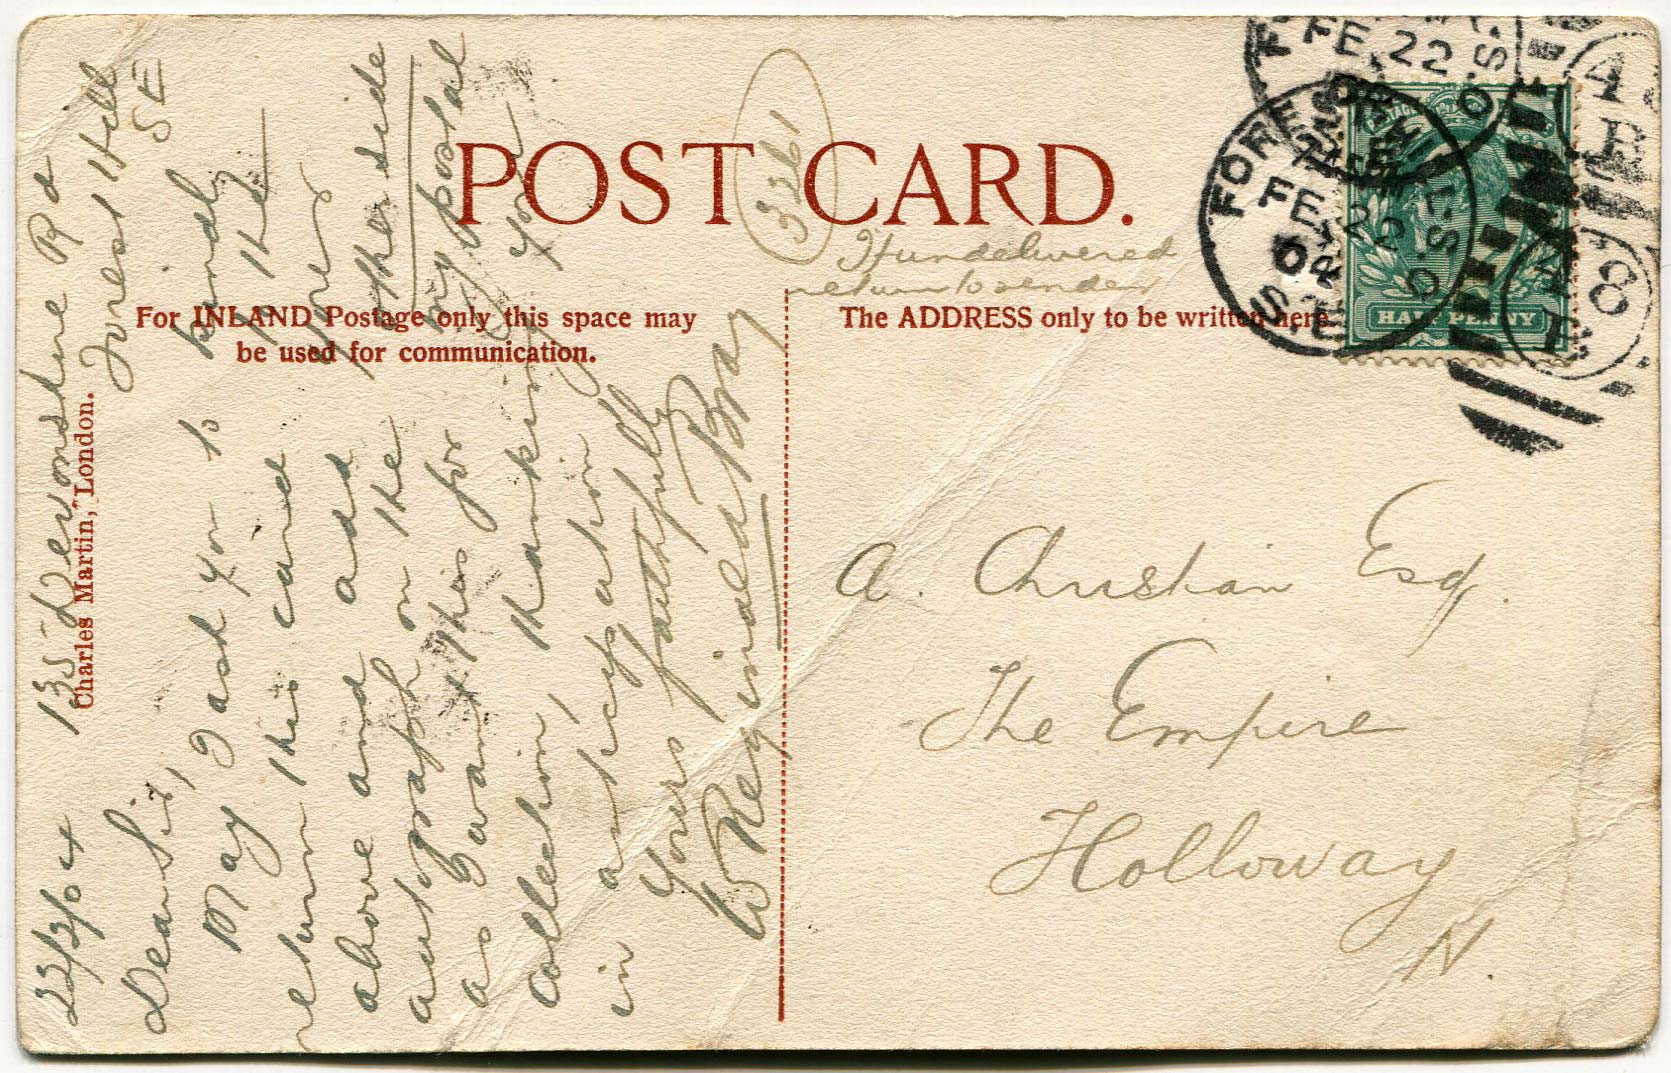 POST CARD.
3361
If undelivered
return to sender
For INLAND Postage only this space may
be used for communication.
The ADDRESS only to be written here
Charles Martin, London.
FOREST HILL S.O.
FE 22
04
S.E.
HALF PENNY
POSTAGE
A. Christian Esq.
The Empire
Holloway
N.
22/2/04 135 Devonshire Rd
Forest Hill
SE
Dear Sir,
May I ask you to kindly
return this card to the
above and add your
autograph on the other side
as I want this for my postal
collection, thanking you
in anticipation
Yours faithfully
W Reginald Bray